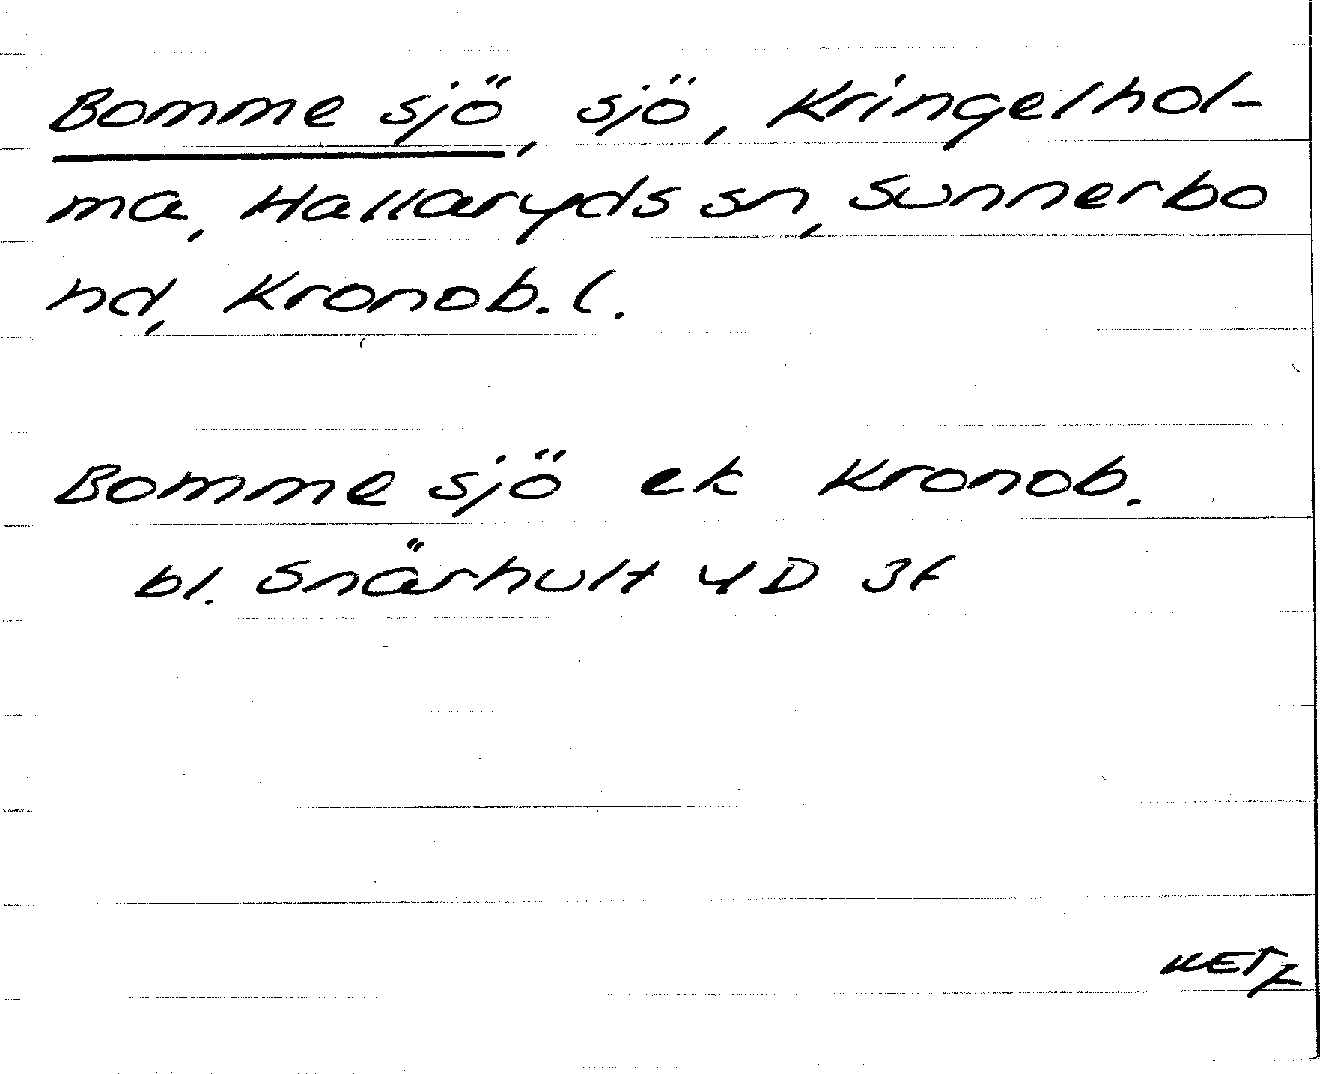 Bomme sjö, sjö, Kringelhol-
ma, Hallaryds sn, Sunnerbo
hd, Kronob. l.
Bomme sjö ek Kronob.
bl. Snärhult 4D 3f